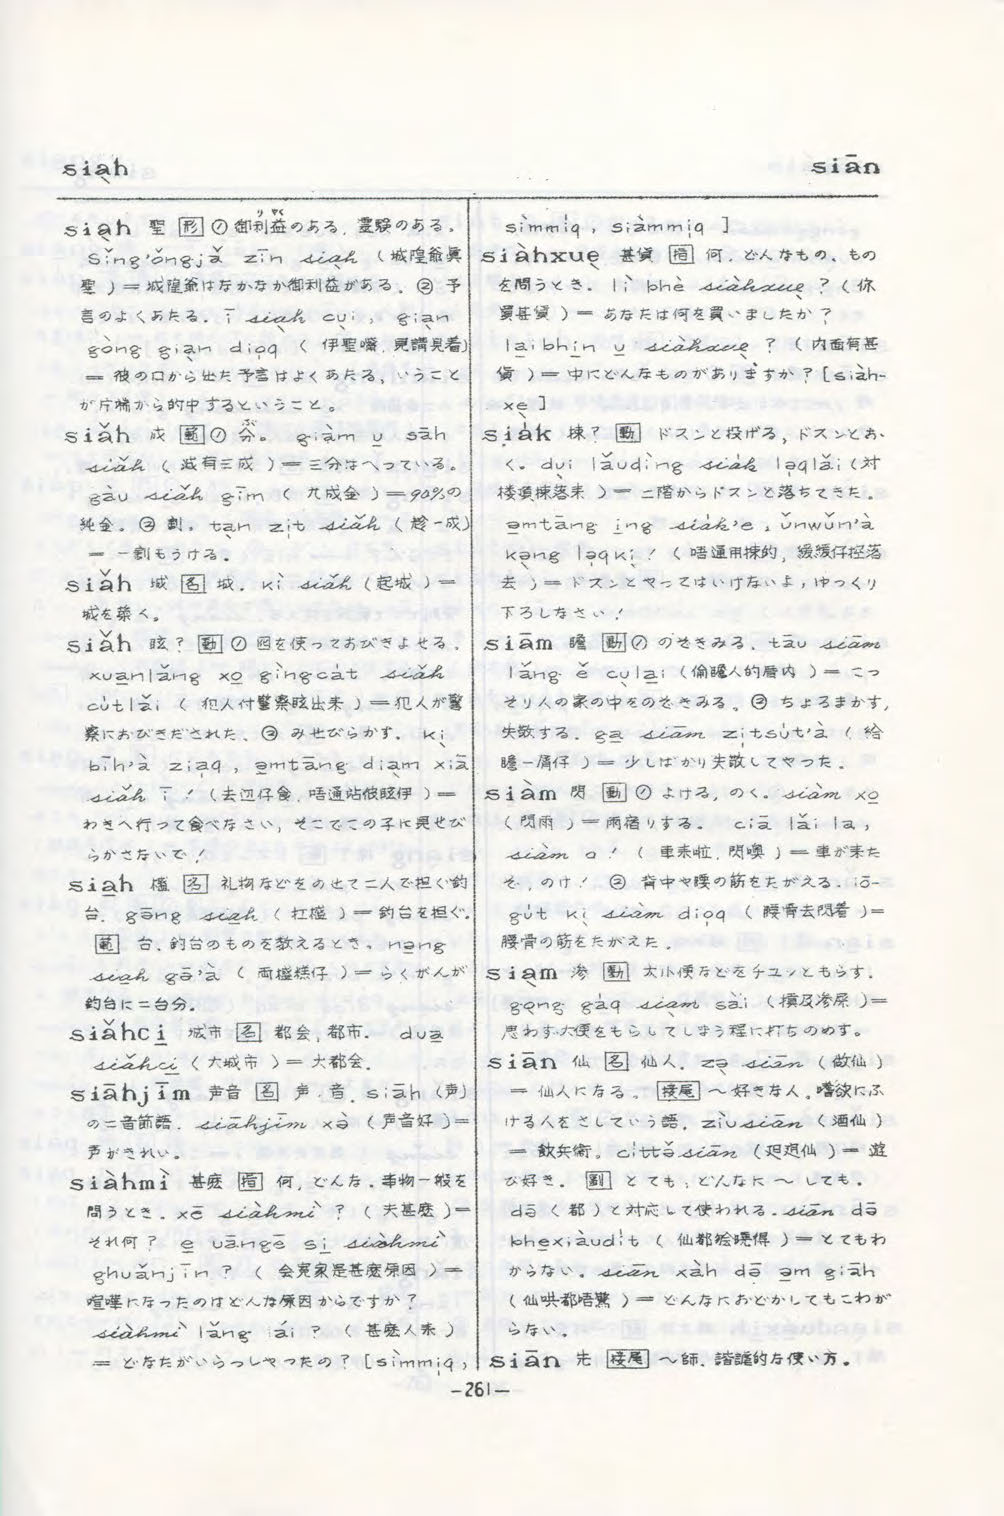 siạh
siān
siạh 聖 [形] ① 御利益のある,霊験のある。
りやく
Sǐng'ǒngjǎ zīn siạh (城隍爺眞
聖)= 城隍爺はなかなか御利益がある. ② 予
言のよくあたる. ī siạh cụi, giạn
gòng giạn dioq (伊聖嘴,見講見着)
= 彼の口から出た予言はよくあたる,いうこと
が片端から的中するということ。
siǎh 成 [範] ① 分。 giàm u̱ sāh
ぶ
siǎh (減有三成)= 三分はへっている。
gàu siǎh gīm (九成金)= 90%の
純金。 ② 割。 tạn zịt siǎh (趁一成)
= 一割もうける.
siǎh 城 [名] 城. kì siǎh (起城)=
城を築く。
siǎh 眩? [動] ① 囮を使っておびきよせる.
xuạnlǎng xo̱ gìngcát siǎh
cútlǎi (犯人付警察眩出来)= 犯人が警
察におびきだされた. ② みせびらかす. kị
bīh'à ziaq, a̱mtāng diạm xiā
siǎh ī! (去辺仔食,唔通站彼眩伊)=
わきへ行って食べなさい,そこでこの子に見せび
らかさないで!
sia̱h 槛 [名] 礼物などをのせて二人で担ぐ釣
台. gōng sia̱h (扛槛)= 釣台を担ぐ.
[範] 台、釣台のものを教えるとき。 nəng
sia̱h gō'à (両槛糕仔)= らくがんが
釣台に二台分.
siǎhci̱ 城市 [名] 都会,都市. dua̱
siǎhci̱ (大城市)= 大都会.
siāhjīm 声音 [名] 声・音. siāh (声)
の二音節語. siāhjīm xə̀ (声音好)=
声がきれい。
siàhmì 甚麽 [指] 何,どんな.事物一般を
問うとき. xē siàhmì? (夫甚麽)=
それ何? e̱ uāngē si̱ siàhmì
ghuǎnjīn? (会寃家是甚麽原因)=
喧嘩になったのはどんな原因からですか?
siàhmì lǎng lái? (甚麽人来)
= どなたがいらっしゃったの? [sìmmiq,
sìmmịq, siàmmịq ]
siàhxuẹ 甚貨 [指] 何,どんなもの、もの
を問うとき. lì bhè siàhxuẹ? (你
買甚貨)= あなたは何を買いましたか?
la̱ibhi̱n u̱ siàhxuẹ? (内面有甚
貨)= 中にどんなものがありますか? [siàh-
xẹ ]
siák 捒? [動] ドスンと投げる,ドスンとお.
く。 dụi lǎudìng siák lạqlǎi (対
楼頂捒落来)= 二階からドスンと落ちてきた.
a̱mtāng i̱ng siák'e, ǔnwǔn'à
kạng lạqkị! (唔通用捒的,緩緩仔控落
去)= ドスンとやってはいけないよ,ゆっくり
下ろしなさい!
siām 瞻 [動] ① のぞきみる. tāu siām
lǎng ě cụla̱i (偷瞻人的厝内)= こっ
そり人の家の中をのぞきみる. ② ちょろまかす,
失敬する. ga̱ siām zi̍tsút'à (給
瞻一屑仔)= 少しばかり失敬してやった.
siàm 閃 [動] ① よける,のく。 siàm xo̱
(閃雨)= 雨宿りする. ciā lǎi la,
siàm o! (車来啦,閃噢)= 車が来た
ぞ,のけ! ② 背中や腰の筋をたがえる. iō-
gút kị siàm dioq (腰骨去閃着)=
腰骨の筋をたがえた.
siạm 渗 [動] 大小便などをチュッともらす.
gọng gàq siạm sài (摃及渗屎)=
思わず大便をもらしてしまう程に打ちのめす。
siān 仙 [名] 仙人. zə̣ siān (做仙)
= 仙人になる. [接尾] ~好きな人。嗜欲にふ
ける人をさしていう語. ziùsiān (酒仙)
= 飲兵衛。 cittə̌siān (𨑨迌仙)= 遊
び好き. [副] とても,どんなに~しても.
dō (都)と対応して使われる. siān dō
bhe̱xiàudi̍t (仙都𣍐曉得)= とてもわ
からない. siān xàh dō a̱m giāh
(仙哄都唔驚)= どんなにおどかしてもこわが
らない.
siān 先 [接尾] ~師.諧謔的な使い方。
—261—